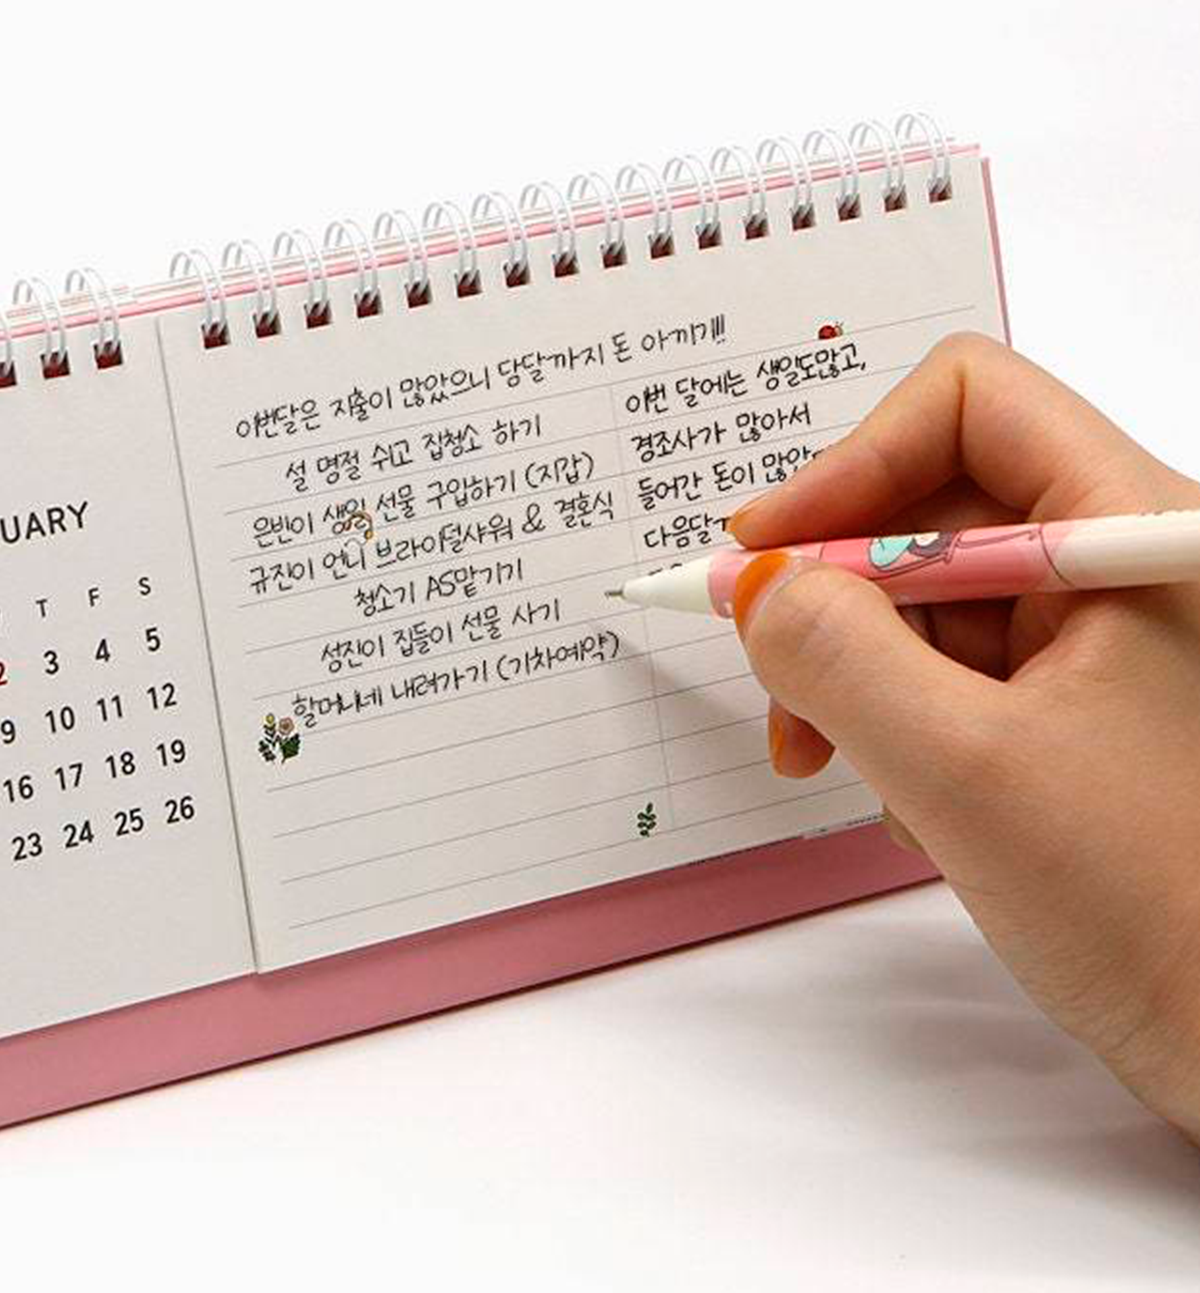 UARY
T F S
2 3 4 5
9 10 11 12
16 17 18 19
23 24 25 26
이번달은 지출이 많았으니 당달까지 돈 아끼기!!!
설 명절 쉬고 집청소 하기
은빈이 생일 선물 구입하기 (지갑)
규진이 언니 브라이덜샤워 & 결혼식
청소기 AS맡기기
성진이 집들이 선물 사기
할머니네 내려가기 (기차예약)
이번 달에는 생일도많고,
경조사가 많아서
들어간 돈이 많았
다음달